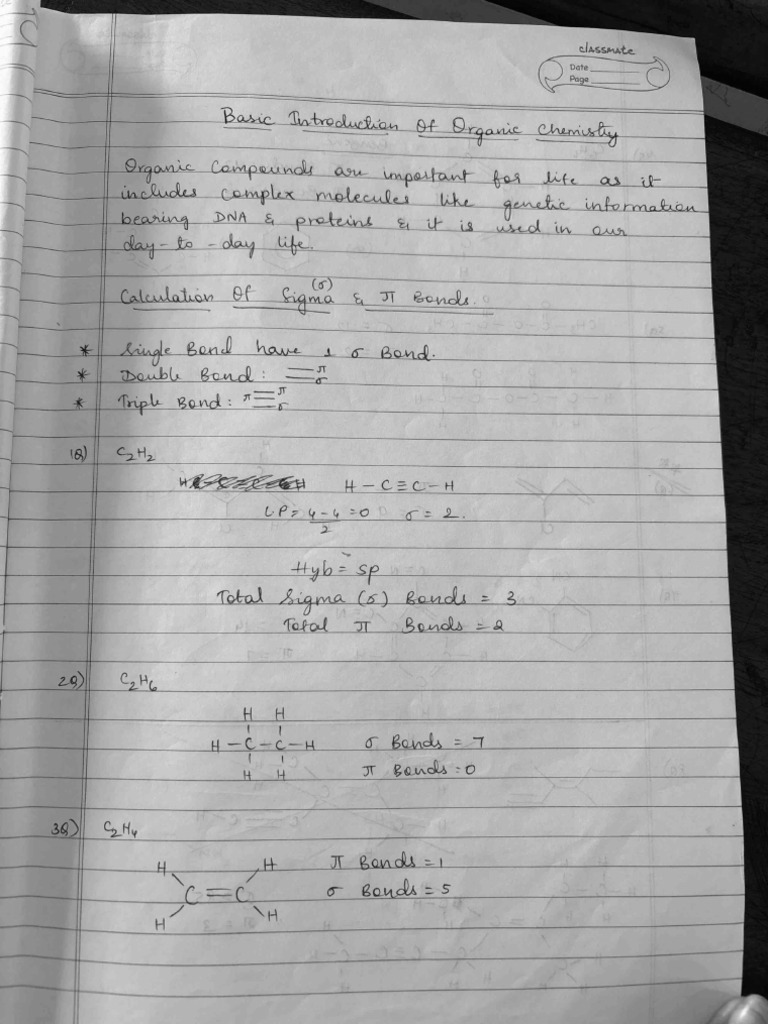 classmate
Date
Page
Basic Introduction Of Organic Chemistry
Organic Compounds are important for life as it
includes complex molecules like genetic information
bearing DNA & proteins & it is used in our
day-to-day life.
Calculation Of Sigma (σ) & π Bonds.
* Single Bond have 1 σ Bond.
* Double Bond: = π σ
* Triple Bond: π ≡ π σ
1Q) C₂H₂
H H H - C ≡ C - H
LP = 4-4/2 = 0 σ = 2.
Hyb = sp
Total Sigma (σ) Bonds = 3
Total π Bonds = 2
2Q) C₂H₆
H H
H - C - C - H σ Bonds = 7
H H π Bonds = 0
3Q) C₂H₄
H H π Bonds = 1
C = C σ Bonds = 5
H H